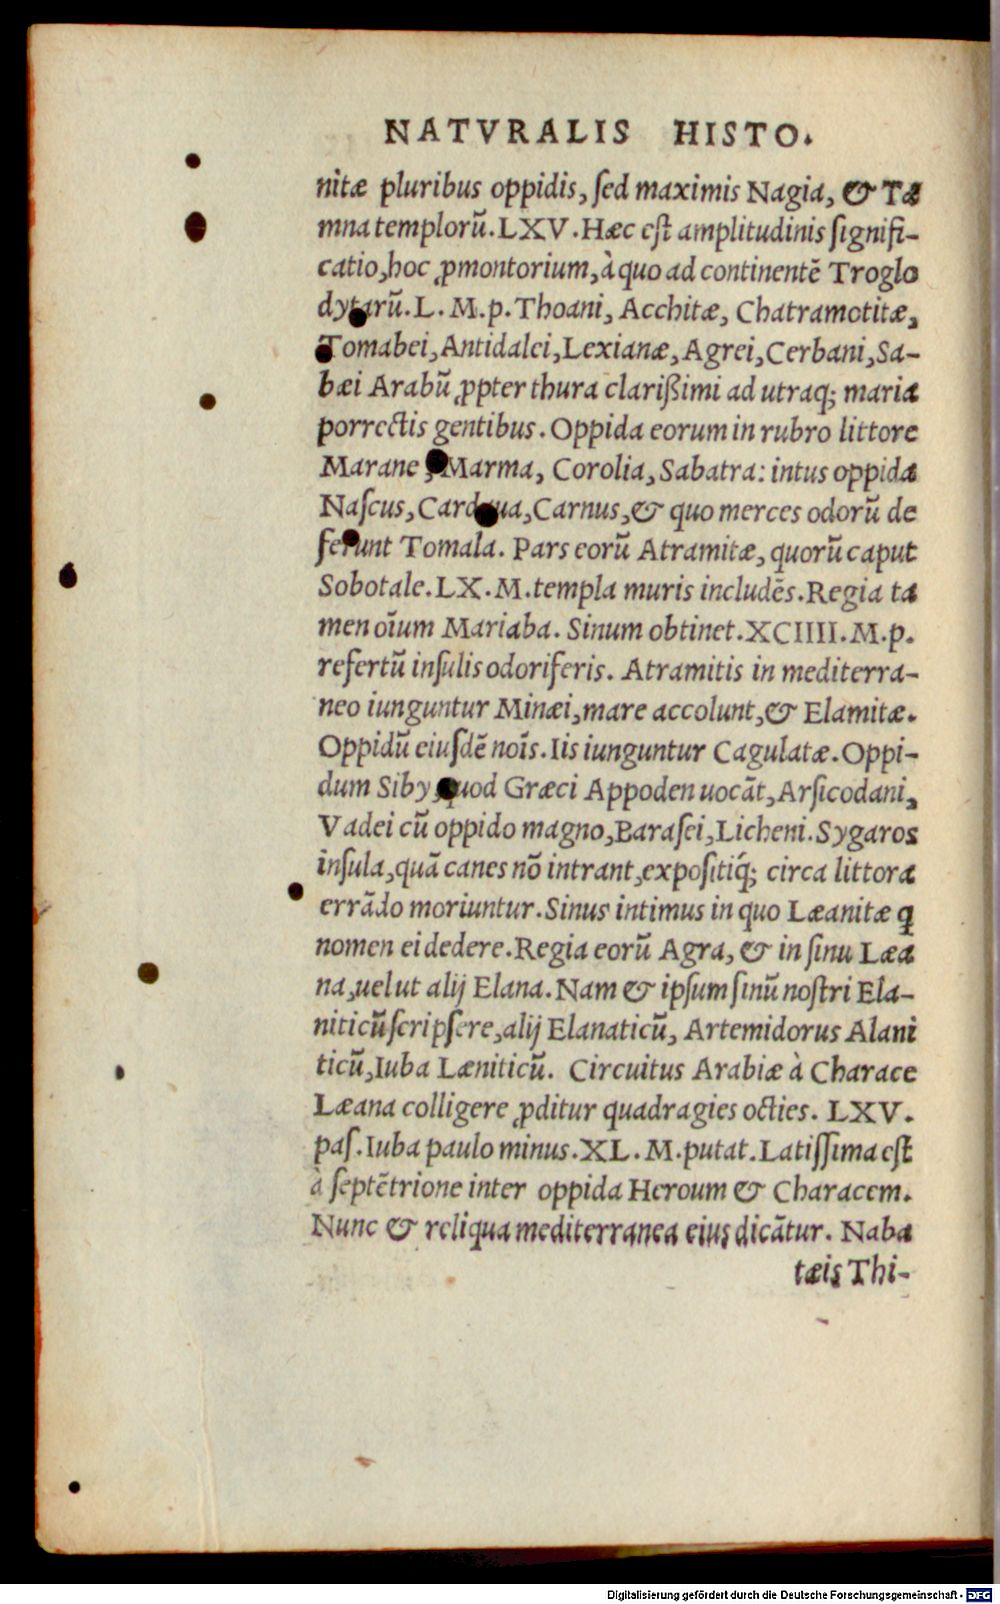 NATVRALIS HISTO.
nitæ pluribus oppidis, ſed maximis Nagia, & Tæ
mna templorũ. LXV. Hæc eſt amplitudinis ſignifi-
catio, hoc ꝓmontorium, à quo ad continentẽ Troglo
dytarũ. L. M. p. Thoani, Acchitæ, Chatramotitæ,
Tomabei, Antidalei, Lexianæ, Agrei, Cerbani, Sa-
bæi Arabũ ꝓpter thura clariſſimi ad utraq; maria
porrectis gentibus. Oppida eorum in rubro littore
Marane, Marma, Corolia, Sabatra: intus oppida
Naſcus, Cardaua, Carnus, & quo merces odorũ de
ferunt Tomala. Pars eorũ Atramitæ, quorũ caput
Sobotale. LX. M. templa muris includẽs. Regia ta
men oĩum Mariaba. Sinum obtinet. XCIIII. M. p.
refertũ inſulis odoriferis. Atramitis in mediterra-
neo iunguntur Minæi, mare accolunt, & Elamitæ.
Oppidũ eiuſdẽ noĩs. Iis iunguntur Cagulatæ. Oppi-
dum Siby, quod Græci Appoden uocãt, Arſicodani,
Vadei cũ oppido magno, Baraſei, Licheni. Sygaros
inſula, quã canes nõ intrant, expoſitiq́; circa littora
errãdo moriuntur. Sinus intimus in quo Læanitæ ꝗ
nomen ei dedere. Regia eorũ Agra, & in ſinu Læa
na, uel ut alij Elana. Nam & ipſum ſinũ noſtri Ela-
niticũ ſcripſere, alij Elanaticũ, Artemidorus Alani
ticũ, Iuba Læniticũ. Circuitus Arabiæ à Charace
Læana colligere ꝓditur quadragies octies. LXV.
paſ. Iuba paulo minus. XL. M. putat. Latiſſima eſt
à ſeptẽtrione inter oppida Heroum & Characem.
Nunc & reliqua mediterranea eius dicãtur. Naba
tæis Thi-
Digitalisierung gefördert durch die Deutsche Forschungsgemeinschaft - DFG